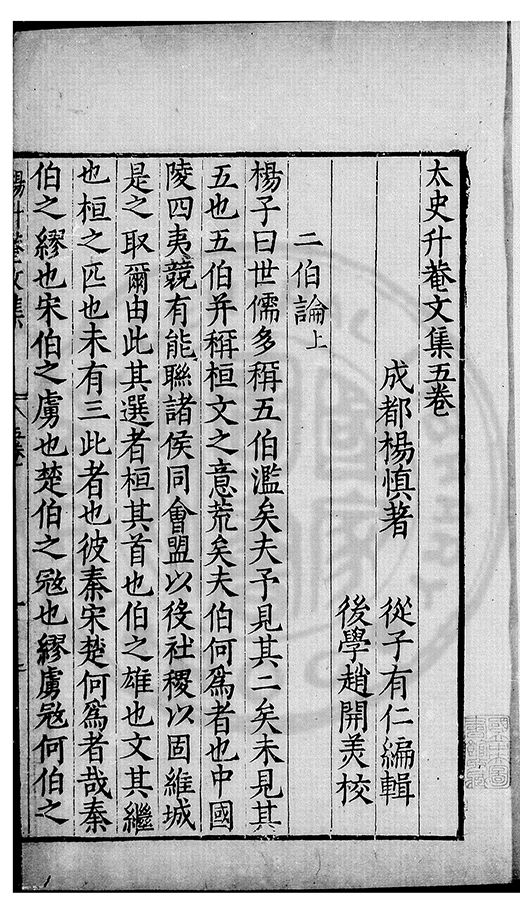 太史升菴文集五卷
成都楊慎著
從子有仁編輯
後學趙開美校
二伯論上
楊子曰世儒多稱五伯濫矣夫予見其二矣未見其
五也五伯并稱桓文之意荒矣夫伯何爲者也中國
陵四夷競有能聯諸侯同會盟以役社稷以固維城
是之取爾由此其選者桓其首也伯之雄也文其繼
也桓之匹也未有三此者也彼秦宋楚何爲者哉秦
伯之繆也宋伯之虜也楚伯之宼也繆虜宼何伯之